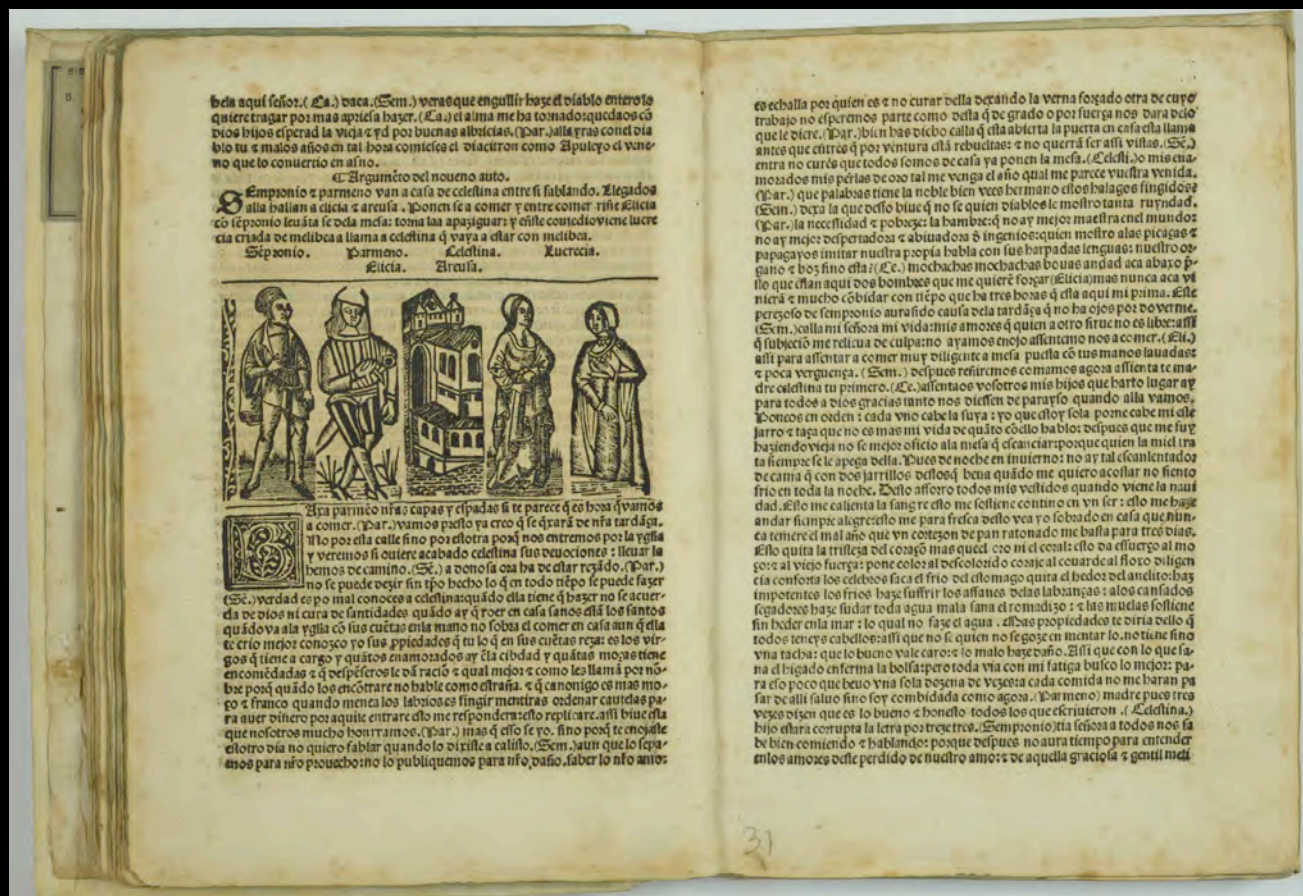 hela aqui señor.(Ca.) daca.(Sem.) veras que engullir haze el diablo entero lo
quiere tragar por mas apriesa hazer.(Ca.) el alma me ha tornado:quedaos cõ
dios hijos esperad la vieja ⁊ yd por buenas albricias.(Par.)alla yras con el dia
blo tu ⁊ malos años en tal hora comieses el diacitron como Apuleyo el vene-
no que lo convertio en asno.
¶Argumẽto del noueno auto.
SEmpronio ⁊ parmeno van a casa de celestina entre si fablando. Llegados
alla hallan a elicia ⁊ areusa. Ponen se a comer y entre comer riñe Elicia
cõ sẽpronio leuãta se dela mesa: torna laa apaziguar: y eñste comedio viene lucre
cia criada de melibea a llama a celestina q̃ vaya a estar con melibea.
Sẽpronio. Parmeno. Celestina. Lucrecia.
Elicia. Areusa.
BAxa parmẽo nr̃as capas y espadas si te parece q̃ es hora q̃vamos
a comer.(Par.)vamos presto ya creo q̃ se q̃xarã de nr̃a tardãça.
No por esta calle sino por estotra porq̃ nos entremos por la yglia
y veremos si ouiere acabado celestina sus deuociones : lleuar la
hemos de camino.(Sẽ.) a donosa ora ha de estar rezãdo.(Par.)
no se puede dezir sin tp̃o hecho lo q̃ en todo tiẽpo se puede fazer
(Sẽ.)verdad es po mal conoces a celestina:quãdo ella tiene q̃ hazer no se acuer-
da de dios ni cura de santidades quãdo ay q̃ roer en casa sanos estã los santos
quãdo va ala yglia cõ sus cuẽtas enla mano no sobra el comer en casa aun q̃ ella
te crio mejor conozco yo sus ppiedades q̃ tu lo q̃ en sus cuẽtas reza: es los vir-
gos q̃ tiene a cargo y quãtos enamorados ay ẽla cibdad y quãtas moças tiene
encomẽdadas ⁊ q̃ despẽseros le dã raciõ ⁊ qual mejor ⁊ como les llamã por nõ-
bre porq̃ quãdo los encõtrare no hable como estraña. ⁊ q̃ canonigo es mas mo-
ço ⁊ franco quando menea los labrios es fingir mentiras ordenar cautelas pa-
ra auer dinero por aquite entrare esto me respondera:esto replicare.assi biue esta
que nosotros mucho honrramos.(Par.) mas q̃ esso se yo. sino porq̃ te enojaste
estotro dia no quiero fablar quando lo dixiste a calisto.(Sem.)aun que lo sepa-
mos para nr̃o prouecho:no lo publiquemos para nr̃o daño.saber lo nr̃o amo:
es echalla por quien es ⁊ no curar della dexando la verna forçado otra de cuyo
trabajo no esperemos parte como desta q̃ de grado o por fuerça nos dara delo
que le diere.(Par.)bien has dicho calla q̃ esta abierta la puerta en casa esta llama
antes que entres q̃ por ventura estã rebueltas: ⁊ no querrã ser assi vistas.(Sẽ.)
entra no curès que todos somos de casa ya ponen la mesa.(Celesti.)o mis ena-
morados mis perlas de oro tal me venga el año qual me parece vuestra venida.
(Par.) que palabras tiene la noble bien vees hermano estos halagos fingidos:
(Sem.) dexa la que desso biue q̃ no se quien diablos le mostro tanta ruyndad.
(Par.)la necessidad ⁊ pobreza: la hambre:q̃ no ay mejor maestra enel mundo:
no ay mejor despertadora ⁊ abiuadora d̃ ingenios:quien mostro alas picaças ⁊
papagayos imitar nuestra propia habla con sus harpadas lenguas: nuestro or-
gano ⁊ boz sino esta:(Ce.) mochachas mochachas bouas andad aca abaxo p̃-
sto que estan aqui dos hombres que me quierẽ forçar(Elicia)mas nunca aca vi
nierã ⁊ mucho cõbidar con tiẽpo que ha tres horas q̃ esta aqui mi prima. Este
perezoso de sempronio aura sido causa dela tardãça q̃ no ha ojos por do verme.
(Sem.)calla mi señora mi vida:mis amores q̃ quien a otro sirue no es libre:assi
q̃ subjeciõ me relieua de culpa:no ayamos enojo assentemo nos a comer.(Eli.)
assi para assentar a comer muy diligente a mesa puesta cõ tus manos lauadas:
⁊ poca verguença. (Sem.) despues reñiremos comamos agora assienta te ma-
dre celestina tu primero.(Ce.)assentaos vosotros mis hijos que harto lugar ay
para todos a dios gracias tanto nos diessen de parayso quando alla vamos.
Poneos en orden : cada vno cabe la suya : yo que estoy sola porne cabe mi este
jarro ⁊ taça que no es mas mi vida de quãto cõello hablo: despues que me fuy
haziendo vieja no se mejor oficio ala mesa q̃ escanciar:porque quien la miel tra
ta siempre se le apega della.Pues de noche en inuierno: no ay tal escalentador
de cama q̃ con dos jarrillos destosq̃ beua quãdo me quiero acostar no siento
frio en toda la noche. Desto afforro todos mis vestidos quando viene la naui
dad.Esto me calienta la sangre esto me sostiene contino en vn ser : esto me haze
andar siempre alegre:esto me para fresca desto vea yo sobrado en casa que nun-
ca temere el mal año que vn cortezon de pan ratonado me basta para tres dias.
Esto quita la tristeza del coraçõ mas quel oro ni el coral: esto da esfuerço al mo
ço:⁊ al viejo fuerça: pone color al descolorido coraje al couarde al floxo diligen
cia conforta los celebros saca el frio del estomago quita el hedor del anelito:haz
impotentes los frios haze suffrir los affanes delas labranças : alos cansados
segadores haze sudar toda agua mala sana el romadizo : ⁊ las muelas sostiene
sin heder enla mar : lo qual no faze el agua . Mas propiedades te diria dello q̃
todos teneys cabellos:assi que no se quien no se goze en mentar lo.no tiene sino
vna tacha: que lo bueno vale caro:⁊ lo malo haze daño. Assi que con lo que sa-
na el higado enferma la bolsa:pero toda via con mi fatiga busco lo mejor: pa-
ra eso poco que beuo vna sola dozena de vezes:a cada comida no me haran pa
sar de alli saluo sino soy combidada como agora.(Parmeno) madre pues tres
vezes dizen que es lo bueno ⁊ honesto todos los que escriuieron .( Celestina.)
hijo estara corrupta la letra por treze tres.(Sempronio)tia señora a todos nos sa
be bien comiendo ⁊ hablando: porque despues no aura tiempo para entender
enlos amores deste perdido de nuestro amo:⁊ de aquella graciosa ⁊ gentil meli
31